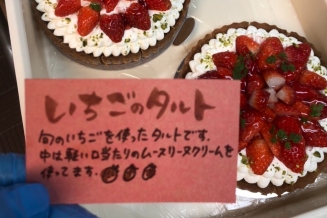 いちごのタルト
旬のいちごを使ったタルトです。
中は軽い口当たりのムースリーヌクリームを
使ってます。